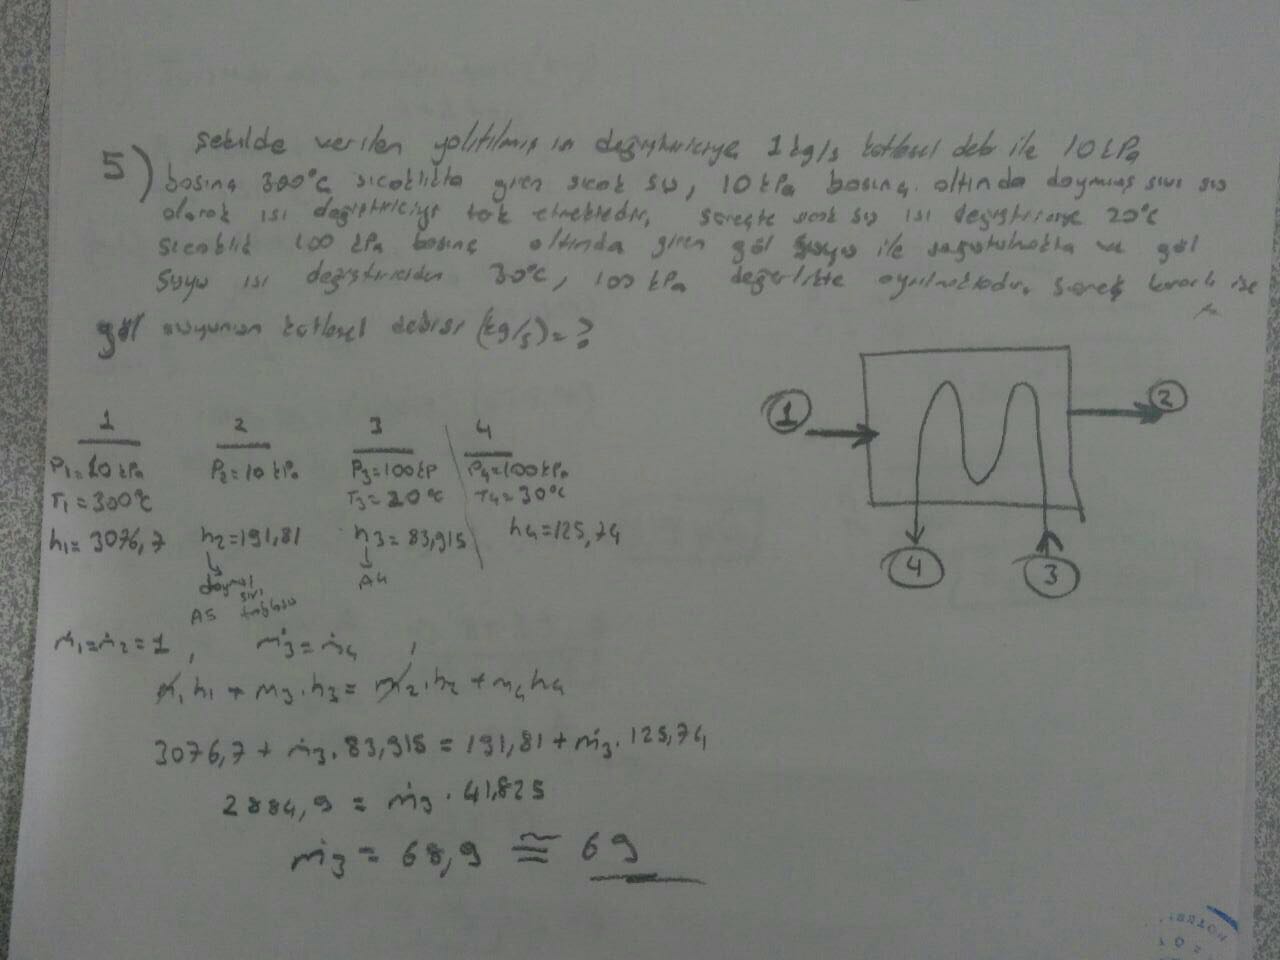 5) Şekilde verilen yalıtılmış ısı değiştiriciye 1 kg/s kütlesel debi ile 10 kPa
basınç 300°C sıcaklıkta giren sıcak su, 10 kPa basınç altında doymuş sıvı
olarak ısı değiştiriciyi terk etmektedir. Süreçte sıcak su ısı değiştiriciye 20°C
sıcaklık 100 kPa basınç altında giren göl suyu ile soğutulmakta ve göl
suyu ısı değiştiriciden 30°C, 100 kPa değerlikte ayrılmaktadır. Süreç kararlı ise
göl suyunun kütlesel debisi (kg/s) = ?
1 2 3 4
P1=10 kPa P2=10 kPa P3=100 kP P4=100 kPa
T1=300°C T3=20°C T4=30°C
h1=3076,7 h2=191,81 h3=83,915 h4=125,74
doymuş sıvı tablosu
A5
A4
ṁ1=ṁ2=1, ṁ3=ṁ4,
ṁ1h1+ṁ3.h3=ṁ2.h2+ṁ4h4
3076,7+ṁ3.83,915=191,81+ṁ3.125,74
2884,9=ṁ3.41,825
ṁ3=68,9≅69
1
2
4
3